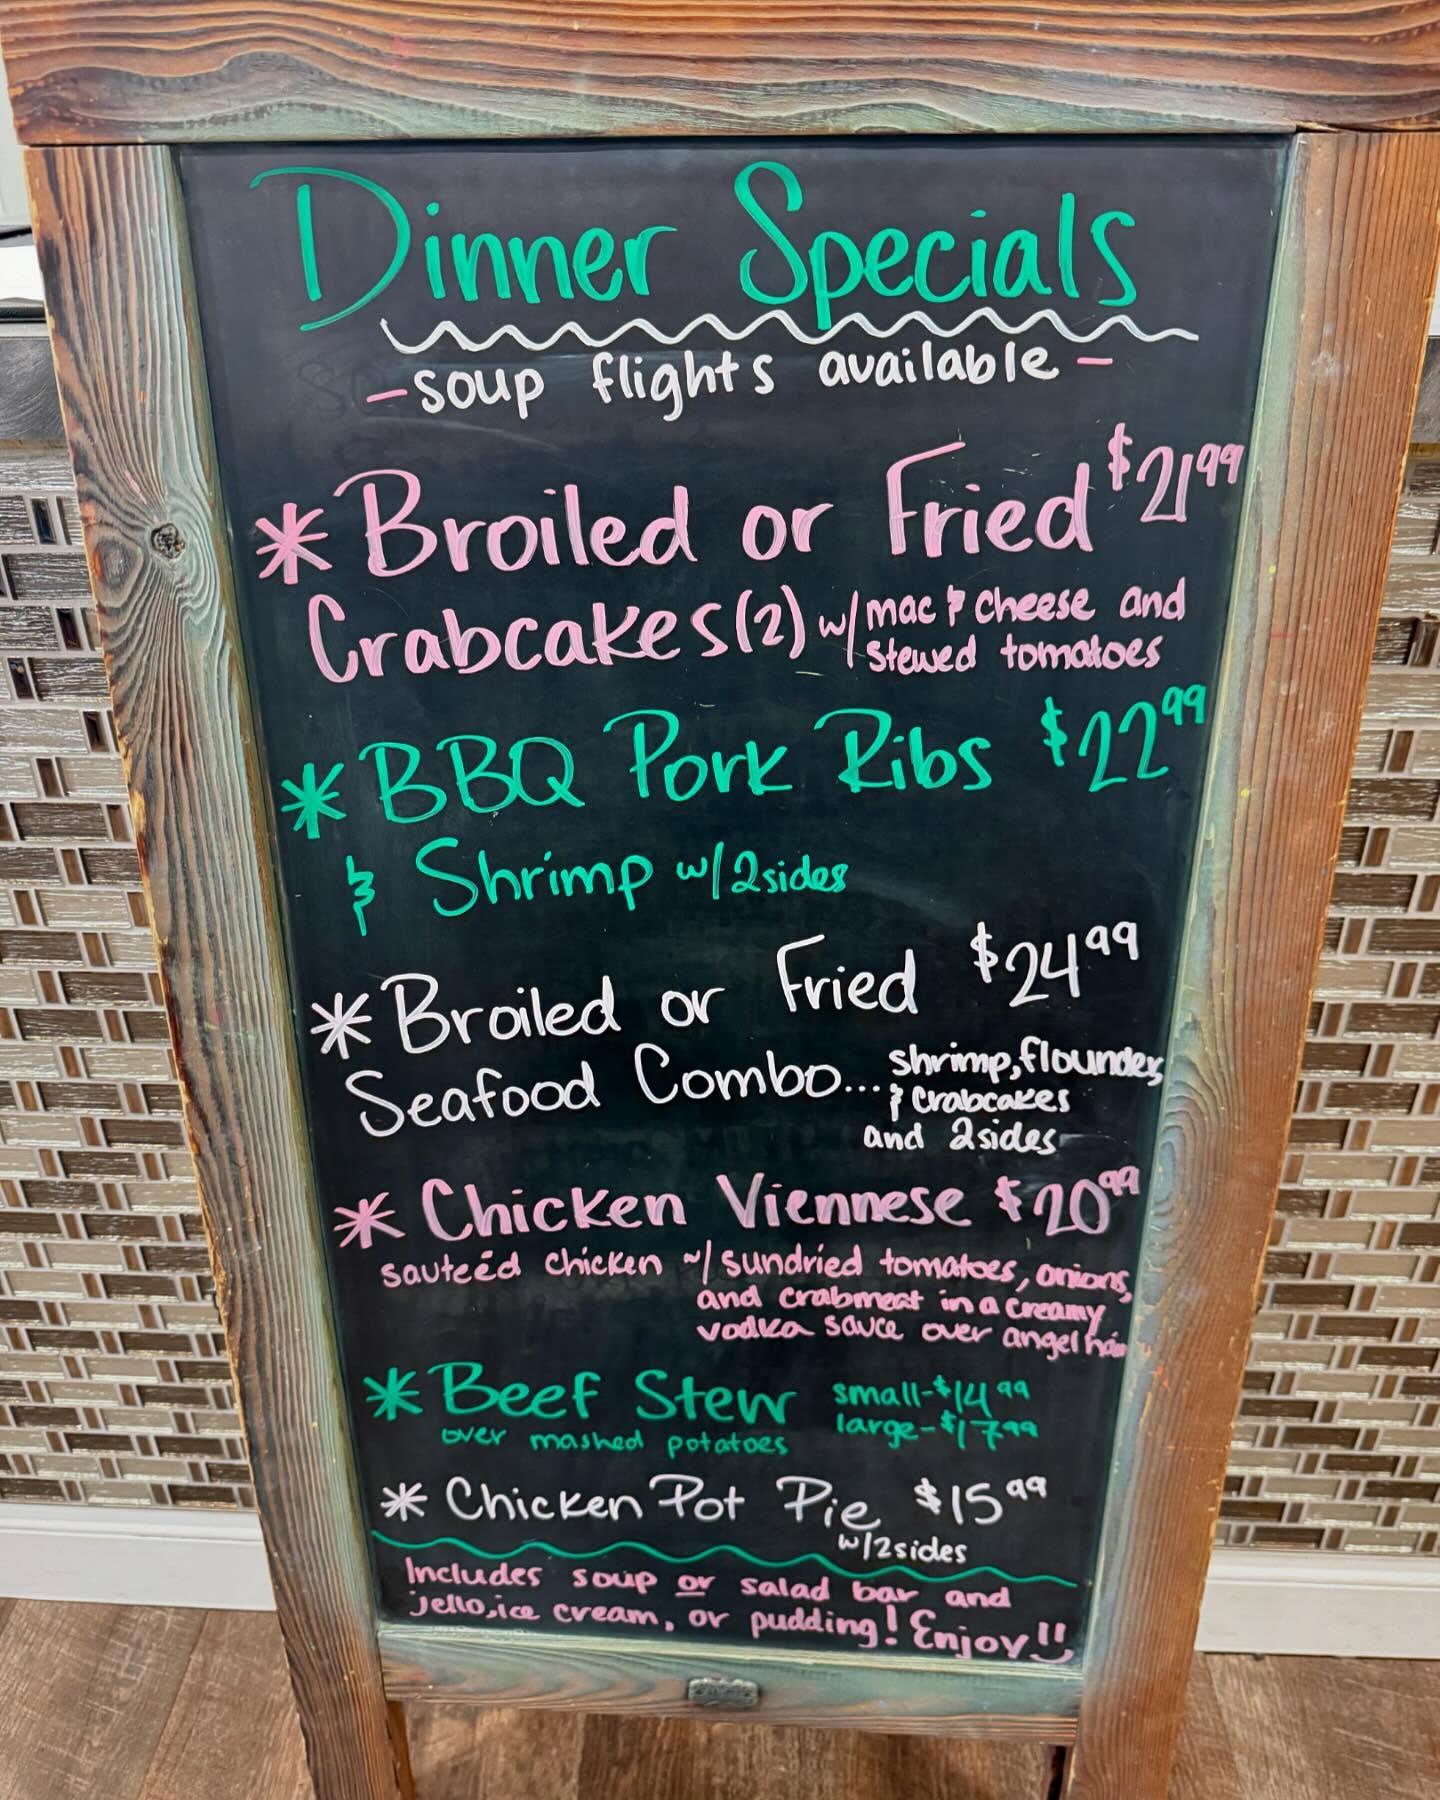 Dinner Specials
- soup flights available -
* Broiled or Fried $21.99
Crabcakes (2) w/ mac & cheese and
stewed tomatoes
* BBQ Pork Ribs $22.99
& Shrimp w/ 2 sides
* Broiled or Fried $24.99
Seafood Combo... shrimp, flounder,
& crabcakes
and 2 sides
* Chicken Viennese $20.99
sauteéd chicken w/ sundried tomatoes, onions,
and crabmeat in a creamy
vodka sauce over angel hair
* Beef Stew small - $14.99
over mashed potatoes large - $17.99
* Chicken Pot Pie $15.99
w/ 2 sides
Includes soup or salad bar and
jello, ice cream, or pudding! Enjoy!!